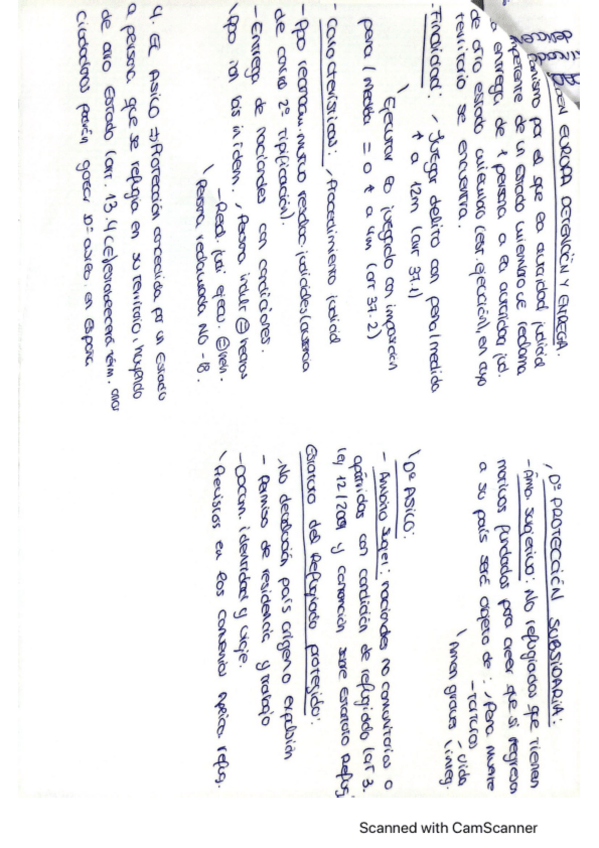 ORDEN EUROPA DETENCIÓN Y ENTREGA.
por el que la autoridad judicial
de un Estado miembro reclama
entrega de 1 persona a la autoridad jud.
de otro estado miembro (est. ejecución), en cuyo
territorio se encuentra.
- Finalidad: Juzgar delito con pena/medida
+ a 12m (art 37.1)
Ejecutar lo juzgado con imposición
pena/medida = o + a 4m (art 37.2)
- Características: Procedimiento judicial
- Ppo reconocim. mutuo resoluc. judiciales (ausencia
de control 2ª tipificación).
- Entrega de nacionales con condiciones.
Ppo non bis in idem.
Persona reclamada NO -18.
4. EL ASILO ⇒ Protección concedida por un Estado
a persona que se refugia en su territorio, huyendo
de otro Estado (art. 13.4 CE) establecerá térm.
ciudadanos podrán gozar Dº asilo en España
Dº PROTECCIÓN SUBSIDIARIA:
- Ámb. Subjetivo: No refugiados que tienen
motivos fundados para creer que si regresan
a su país será objeto de: Pena muerte
- Torturas
Amen graves vida
integ.
Dº ASILO:
- Ámbito Subjet: nacionales no comunitarios o
apátridas con condición de refugiado (art 3.
ley 12/2009 y convención sobre Estatuto Refug.
Estatuto del Refugiado protegido:
No devolución país origen o expulsión
- Permiso de residencia y trabajo
- Docum. identidad y viaje.
Previstos en los convenios aplica refug.
Scanned with CamScanner